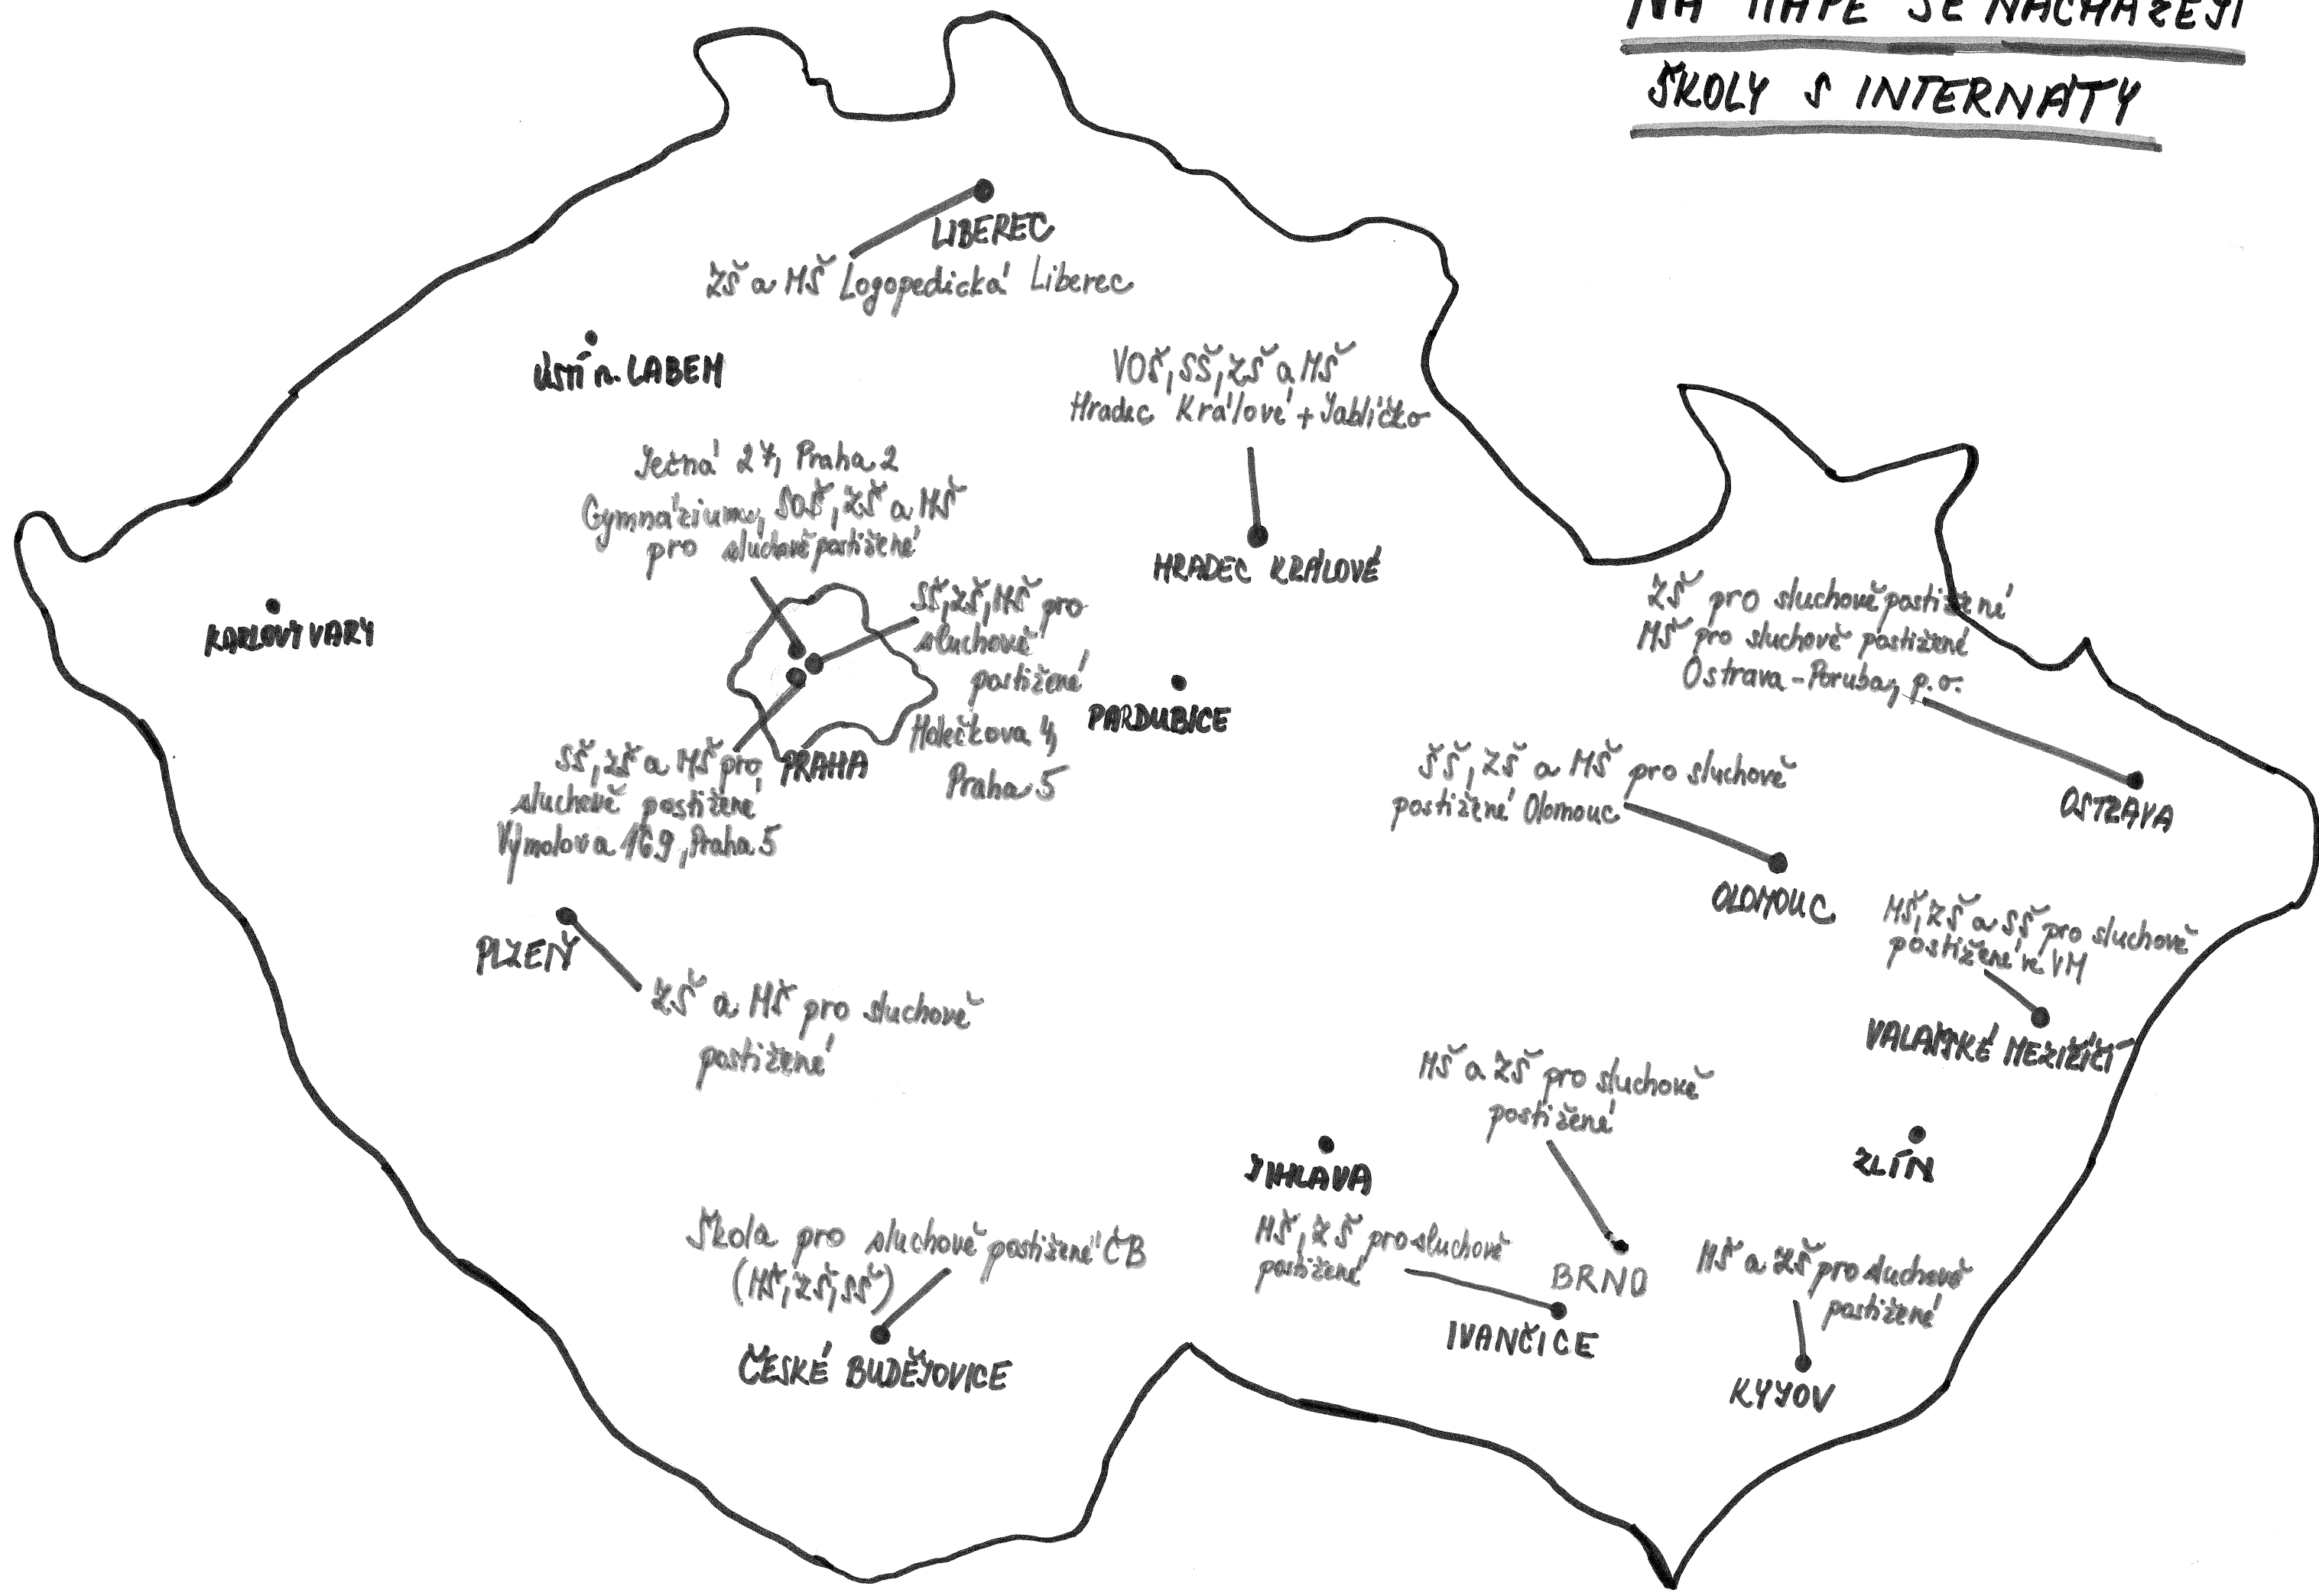 NA MAPĚ SE NACHÁZEJÍ
ŠKOLY S INTERNÁTY
LIBEREC
ZŠ a MŠ Logopedická Liberec
ÚSTÍ n. LABEM
VOŠ, SŠ, ZŠ a MŠ
Hradec Králové + Jablíčko
HRADEC KRÁLOVÉ
Ječná 27, Praha 2
Gymnázium, SOŠ, ZŠ a MŠ
pro sluchově postižené
KARLOVY VARY
SŠ, ZŠ, MŠ pro
sluchově
postižené
Holečkova 4,
Praha 5
PARDUBICE
PRAHA
SŠ, ZŠ a MŠ pro
sluchově postižené
Výmolova 169, Praha 5
ZŠ pro sluchově postižené
MŠ pro sluchově postižené
Ostrava-Poruba, p.o.
OSTRAVA
SŠ, ZŠ a MŠ pro sluchově
postižené Olomouc
OLOMOUC
MŠ, ZŠ a SŠ pro sluchově
postižené ve VM
VALAŠSKÉ MEZIŘÍČÍ
PLZEŇ
ZŠ a MŠ pro sluchově
postižené
MŠ a ZŠ pro sluchově
postižené
BRNO
JIHLAVA
ZLÍN
MŠ, ZŠ pro sluchově
postižené
IVANČICE
MŠ a ZŠ pro sluchově
postižené
KYJOV
Škola pro sluchově postižené ČB
(MŠ, ZŠ, SŠ)
ČESKÉ BUDĚJOVICE